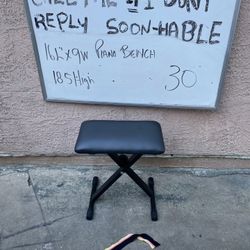 CALL ME IF I DON'T
REPLY SOON-HABLE
16½"x9W PIANO BENCH
18.5 High 30